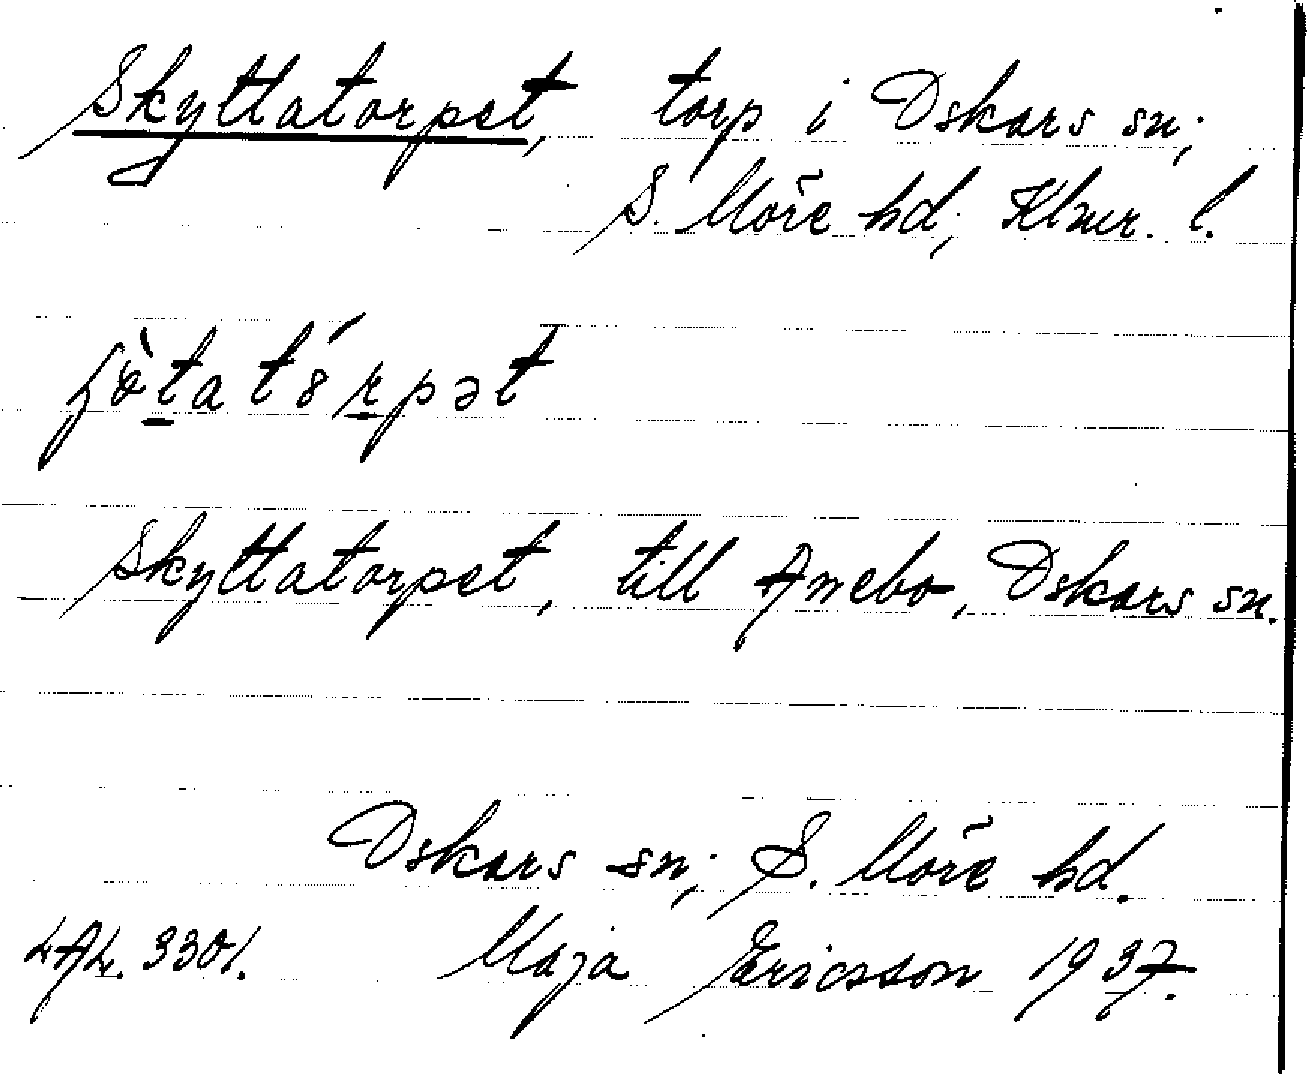 Skyttatorpet, torp i Oskars sn;
S. Möre hd; Klmr. l.
Skyttatorpet, till Anebo, Oskars sn.
Oskars sn; S. Möre hd.
LAL. 3301. Maja Ericsson 1937.